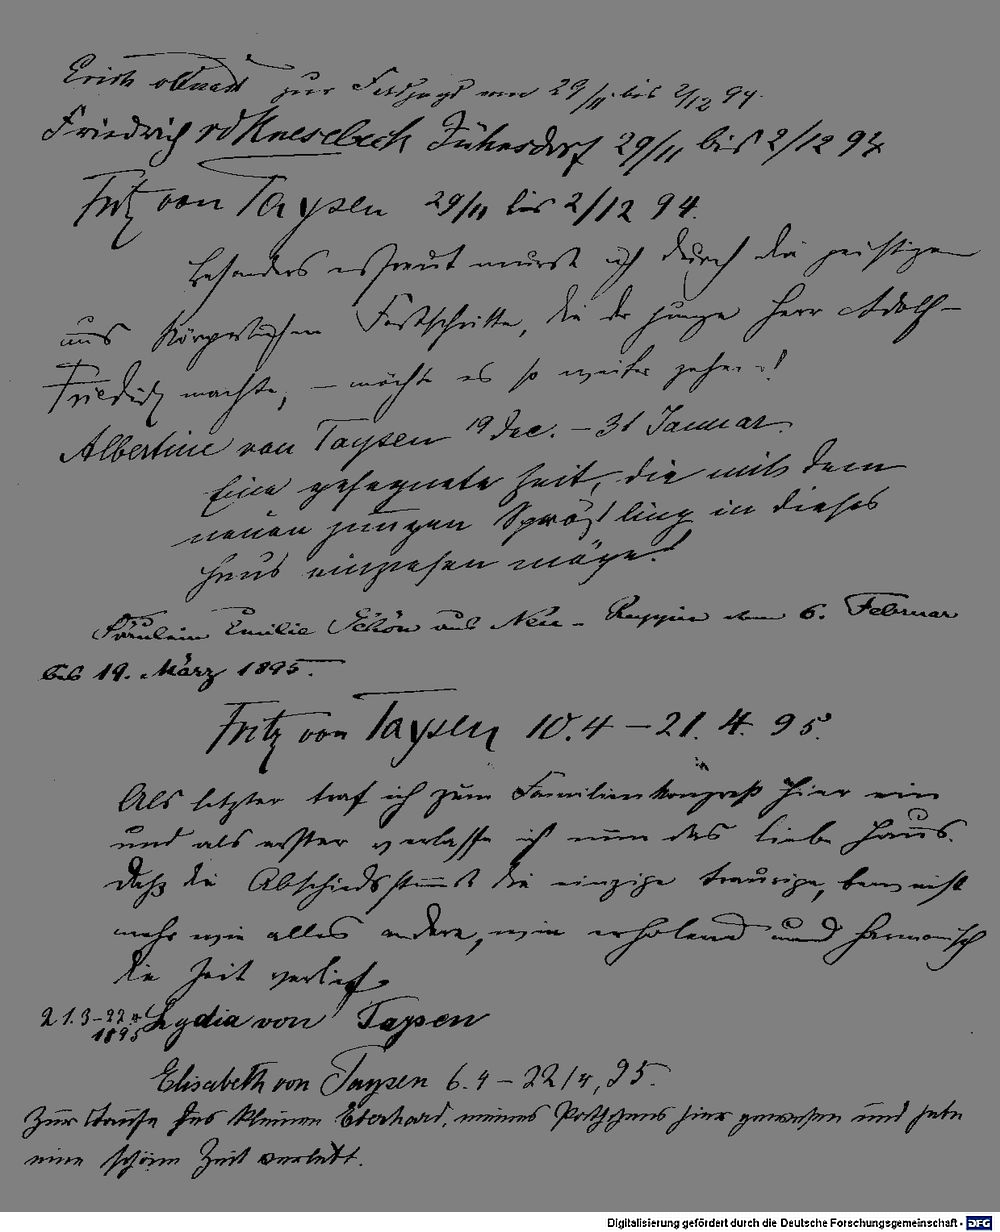 Erich zur Festjagd vom 29/11 bis 2/12 94.
Friedrich vd Knesebeck Jühnsdorf 29/11 bis 2/12 94
Fritz von Taysen 29/11 bis 2/12 94.
Besonders erfreut wurde ich durch die geistigen
und körperlichen Fortschritte, die der junge Herr Adolf-
Friedrich machte, – möchte es so weiter gehen!
Albertine von Taysen 19 Dec. – 31 Januar
Eine gesegnete Zeit, die mit dem
neuen jungen Sprößling in dieses
Haus einziehen möge!
Fräulein Emilie Schön aus Neu-Ruppin vom 6. Februar
bis 19. März 1895.
Fritz von Taysen 10.4 – 21. 4. 95.
Als letzter traf ich zum Familienkongreß hier ein
und als erster verlasse ich nun das liebe Haus.
Daß die Abschiedsstunde die einzige traurige, beweist
mehr wie alles andere, wie erholend und harmonisch
die Zeit verlief.
21.3–22.4 Lydia von Taysen
1895
Elisabeth von Taysen 6.4 – 22/4, 95.
Zur Taufe des kleinen Eberhard, meines Pathchens hier gewesen und habe
eine schöne Zeit verlebt.
Digitalisierung gefördert durch die Deutsche Forschungsgemeinschaft - DFG